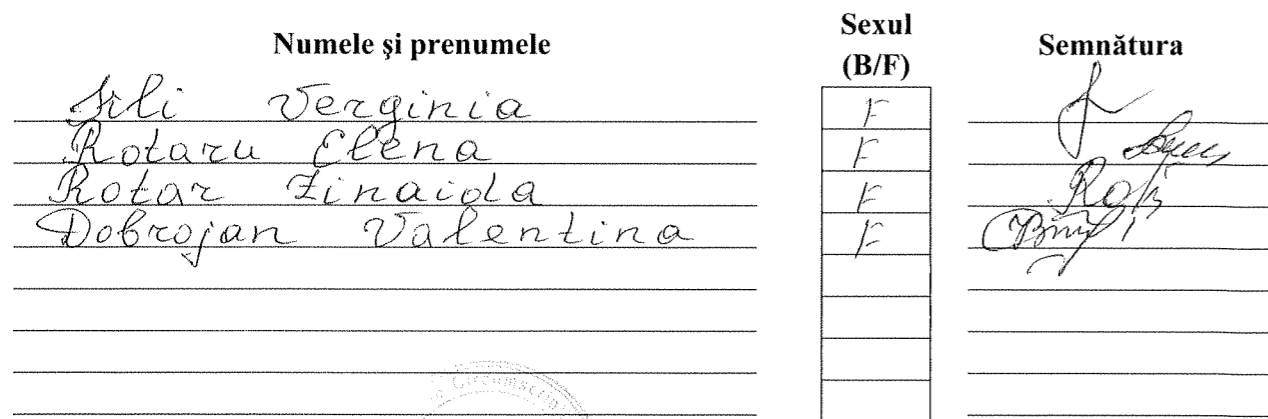 Numele şi prenumele Sexul (B/F) Semnătura
Verginia F
Rotaru Elena F
Rotar Zinaida F
Dobrojan Valentina F